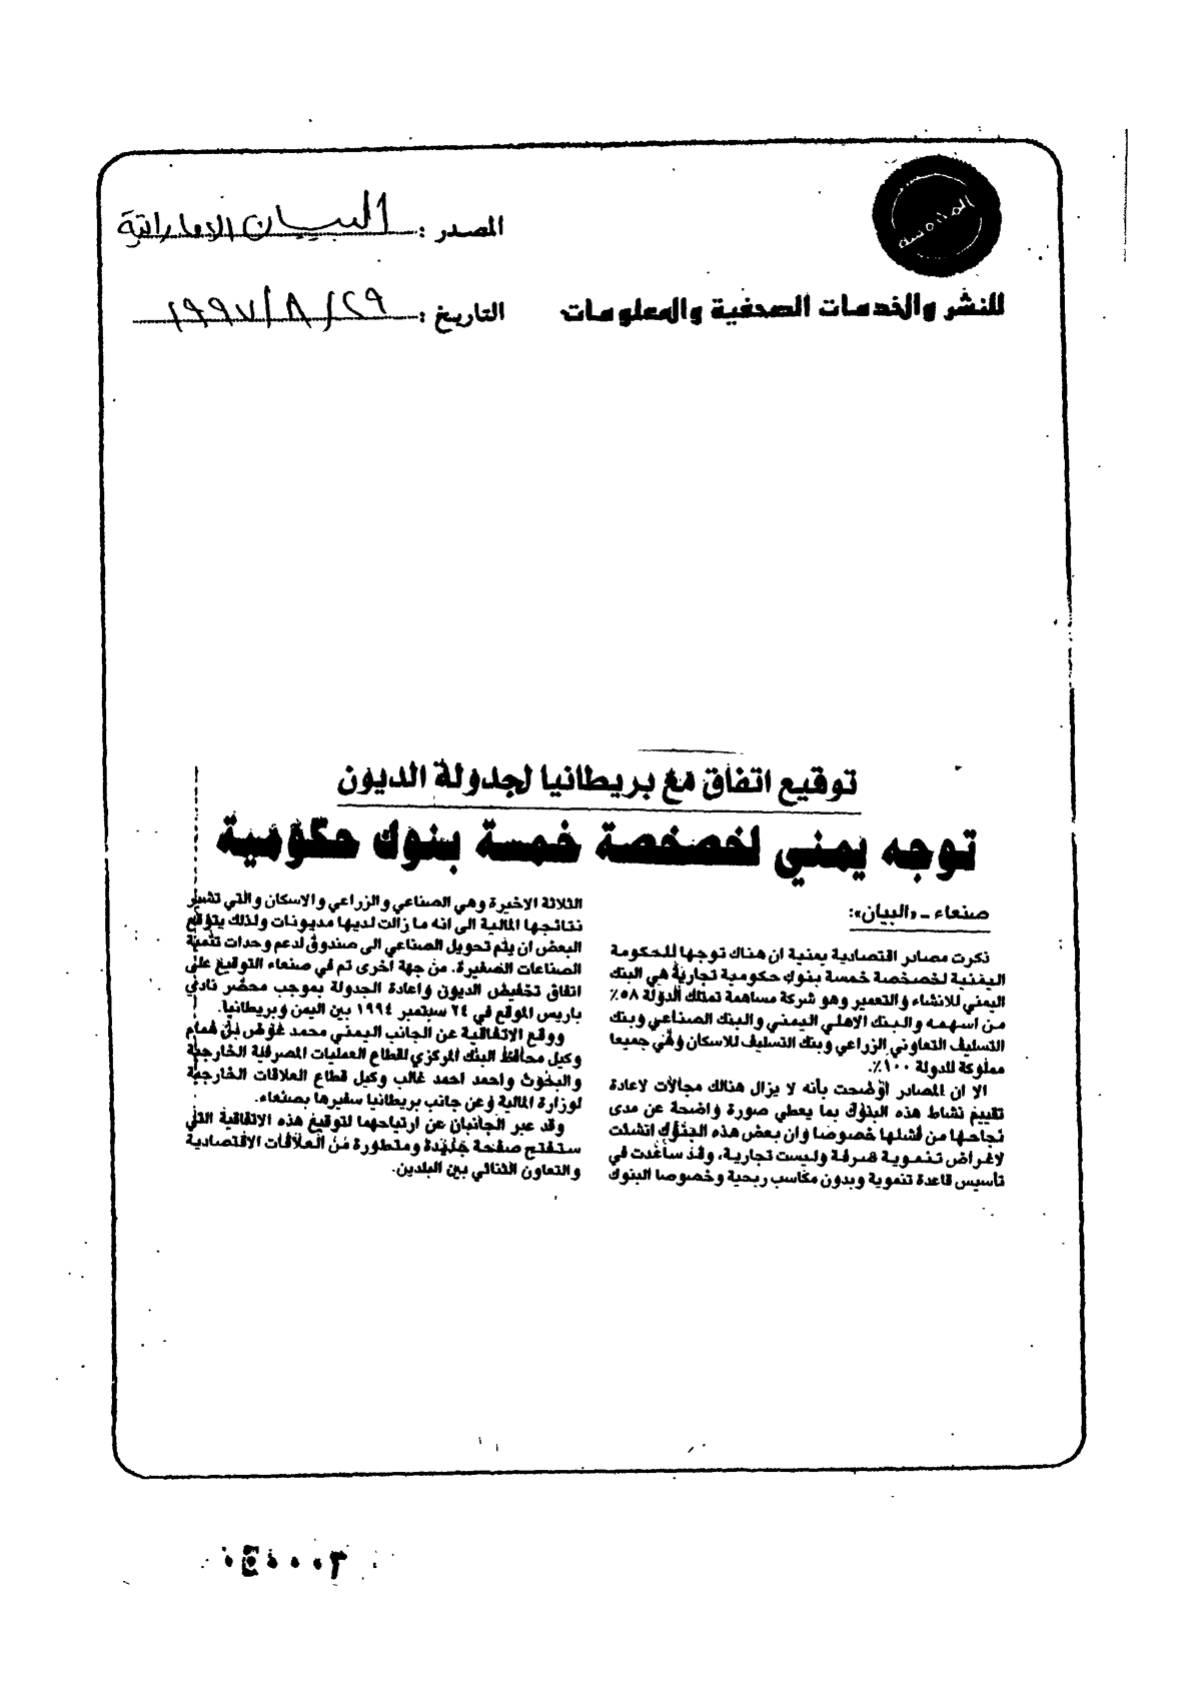 المصدر : البيان الإماراتية
للنشر والخدمات الصحفية والمعلومات
التاريخ : ٢٩/٨/١٩٩٧
توقيع اتفاق مع بريطانيا لجدولة الديون
توجه يمني لخصخصة خمسة بنوك حكومية
صنعاء ــ «البيان»:
ذكرت مصادر اقتصادية يمنية ان هناك توجها للحكومة
اليمنية لخصخصة خمسة بنوك حكومية تجارية هي البنك
اليمني للانشاء والتعمير وهو شركة مساهمة تمتلك الدولة ٥٨٪
من اسهمه والبنك الاهلي اليمني والبنك الصناعي وبنك
التسليف التعاوني الزراعي وبنك التسليف للاسكان وهي جميعا
مملوكة للدولة ١٠٠٪.
الا ان المصادر اوضحت بأنه لا يزال هنالك مجالات لاعادة
تقييم نشاط هذه البنوك بما يعطي صورة واضحة عن مدى
نجاحها من فشلها خصوصا وان بعض هذه البنوك انشئت
لاغراض تنموية صرفة وليست تجارية، وقد ساعدت في
تأسيس قاعدة تنموية وبدون مكاسب ربحية وخصوصا البنوك
الثلاثة الاخيرة وهي الصناعي والزراعي والاسكان والتي تشير
نتائجها المالية الى انه ما زالت لديها مديونات ولذلك يتوقع
البعض ان يتم تحويل الصناعي الى صندوق لدعم وحدات تنمية
الصناعات الصغيرة. من جهة اخرى تم في صنعاء التوقيع على
اتفاق تخفيض الديون واعادة الجدولة بموجب محضر نادي
باريس الموقع في ٢٤ سبتمبر ١٩٩٤ بين اليمن وبريطانيا.
ووقع الاتفاقية عن الجانب اليمني محمد عوض بن همام
وكيل محافظ البنك المركزي لقطاع العمليات المصرفية الخارجية
والبحوث واحمد احمد غالب وكيل قطاع العلاقات الخارجية
لوزارة المالية وعن جانب بريطانيا سفيرها بصنعاء.
وقد عبر الجانبان عن ارتياحهما لتوقيع هذه الاتفاقية التي
ستفتح صفحة جديدة ومتطورة من العلاقات الاقتصادية
والتعاون الثنائي بين البلدين.